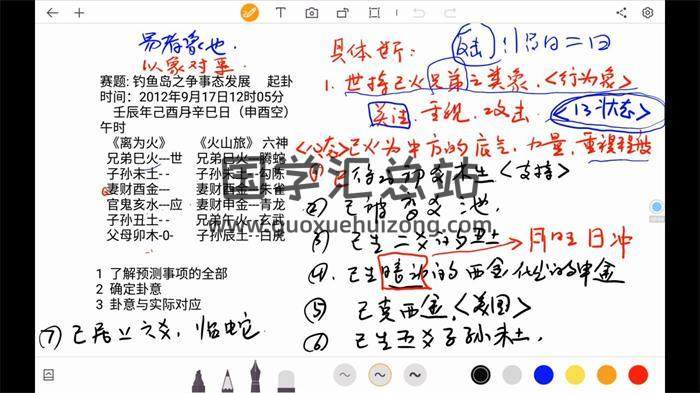 易有象也
以象对事
赛题: 钓鱼岛之争事态发展 起卦
时间：2012年9月17日12时05分
壬辰年己酉月辛巳日（申酉空）
午时
《离为火》 《火山旅》 六神
兄弟巳火---世 兄弟巳火---腾蛇
子孙未土- - 子孙未土- -勾陈
妻财酉金--- 妻财酉金---朱雀
官鬼亥水---应 妻财申金---青龙
子孙丑土- - 兄弟午火- -玄武
父母卯木-0- 子孙辰土- -白虎
1 了解预测事项的全部
2 确定卦意
3 卦意与实际对应
⑦ 巳居上六爻，临蛇
具体世析：
反击
1. 世持巳火兄弟之类象，<行为象>
关注 重视 攻击 <心状态>
<心态> 巳火为中方的底气，力量，重视程度
木土<支持>
② 巳被
③ 巳生二爻的丑土
月旺日冲
④ 巳生暗动的酉金化出的申金
⑤ 巳克酉金，<美国>
⑥ 巳生五爻子孙未土.
国学汇总站
www.guoxuehuizong.com